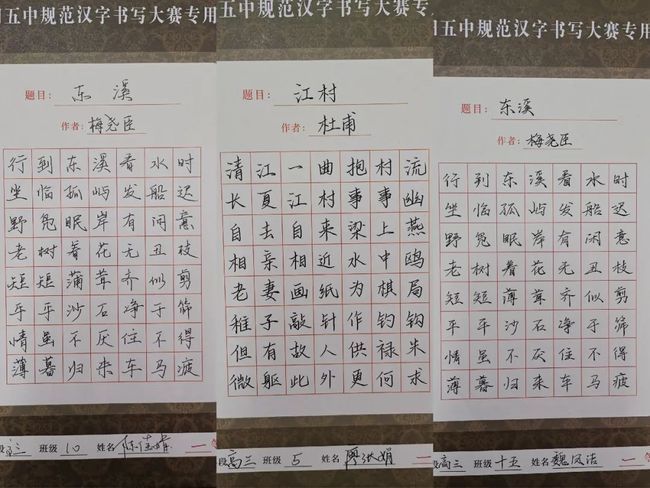 五中规范汉字书写大赛专用
题目：东溪
作者：梅尧臣
行到东溪看水时
坐临孤屿发船迟
野凫眠岸有闲意
老树着花无丑枝
短短蒲茸齐似剪
平平沙石净于筛
情虽不厌住不得
薄暮归来车马疲
段高三 班级 10 姓名
五中规范汉字书写大赛专用
题目：江村
作者：杜甫
清江一曲抱村流
长夏江村事事幽
自去自来梁上燕
相亲相近水中鸥
老妻画纸为棋局
稚子敲针作钓钩
但有故人供禄米
微躯此外更何求
段高三 班级 5 姓名 廖 娟 一
五中规范汉字书写大赛专用
题目：东溪
作者：梅尧臣
行到东溪看水时
坐临孤屿发船迟
野凫眠岸有闲意
老树着花无丑枝
短短薄茸齐似剪
平平沙石净于筛
情虽不厌住不得
薄暮归来车马疲
段高三 班级 十五 姓名 魏凤洁 一